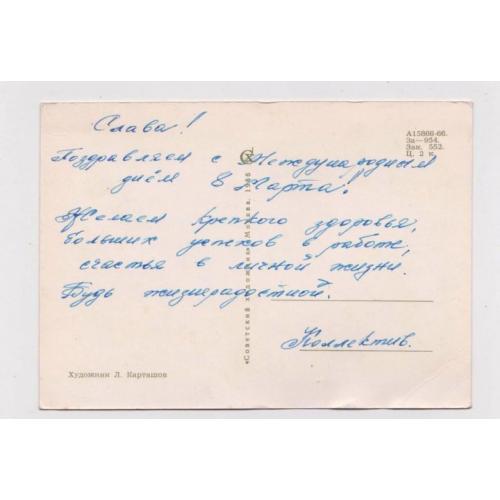 Слава!
А15866-66.
За—954.
Зак. 552.
Ц. 2 к.
Поздравляем с Международным
днём 8 Марта!
Желаем крепкого здоровья,
больших успехов в работе,
счастья в личной жизни.
Будь жизнерадостной.
Коллектив.
«Советский художник» Москва. 1966
Художник Л. Карташов